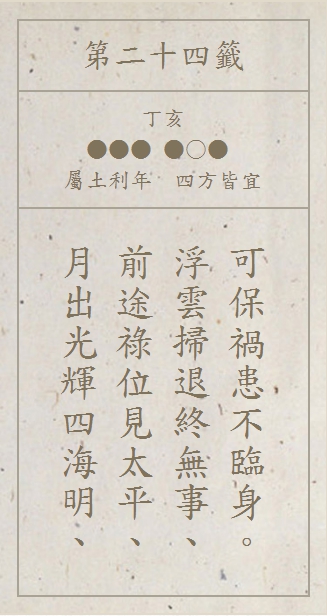 第二十四籤
丁亥
●●● ●○●
屬土利年 四方皆宜
月出光輝四海明、
前途祿位見太平、
浮雲掃退終無事、
可保禍患不臨身。